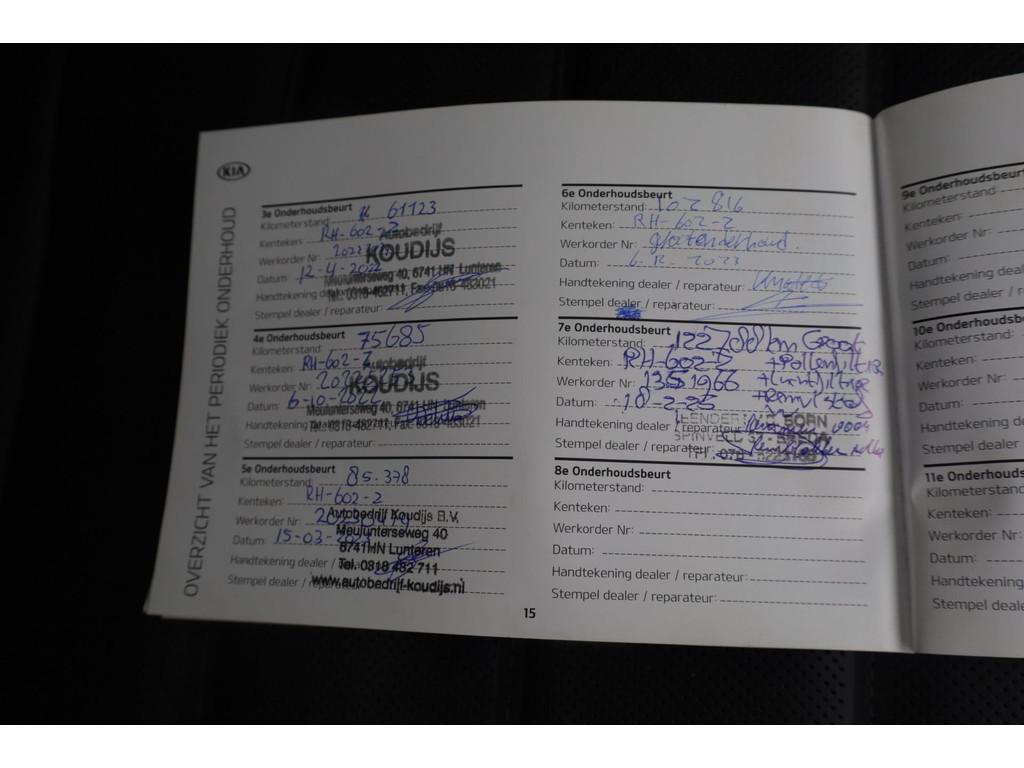 KIA
OVERZICHT VAN HET PERIODIEK ONDERHOUD
3e Onderhoudsbeurt
Kilometerstand: 61123
Kenteken: RH-602-Z
Werkorder Nr:
Datum: 12-4-2022
Handtekening dealer / reparateur:
Stempel dealer / reparateur:
Autobedrijf
KOUDIJS
Meulunterseweg 40, 6741 HN Lunteren
Tel.: 0318-482711, Fax: 0318-483021
4e Onderhoudsbeurt
Kilometerstand: 75685
Kenteken: RH-602-Z
Werkorder Nr:
Datum: 6-10-2022
Handtekening dealer / reparateur:
Stempel dealer / reparateur:
Autobedrijf
KOUDIJS
Meulunterseweg 40, 6741 HN Lunteren
Tel.: 0318-482711, Fax: 0318-483021
5e Onderhoudsbeurt
Kilometerstand: 85.378
Kenteken: RH-602-Z
Werkorder Nr:
Datum: 15-03-2023
Handtekening dealer / reparateur:
Stempel dealer / reparateur:
Autobedrijf Koudijs B.V.
Meulunterseweg 40
6741HN Lunteren
Tel. 0318 482 711
www.autobedrijf-koudijs.nl
6e Onderhoudsbeurt
Kilometerstand: 102816
Kenteken: RH-602-Z
Werkorder Nr: grootonderhoud.
Datum: 6-12-2023
Handtekening dealer / reparateur:
Stempel dealer / reparateur:
7e Onderhoudsbeurt
Kilometerstand: 122788 km Groot
Kenteken: RH-602-Z + Pollenfilter
Werkorder Nr: 1351966 + Luchtfilter
Datum: 10-2-25
Handtekening dealer / reparateur:
Stempel dealer / reparateur:
8e Onderhoudsbeurt
Kilometerstand:
Kenteken:
Werkorder Nr:
Datum:
Handtekening dealer / reparateur:
Stempel dealer / reparateur:
15
9e Onderhoudsbeurt
Kilometerstand:
Kenteken:
Werkorder Nr:
Datum:
Handtekening
Stempel dealer / r
10e Onderhoudsb
Kilometerstand:
Kenteken:
Werkorder Nr:
Datum:
Handtekening d
Stempel dealer
11e Onderhouds
Kilometerstand
Kenteken:
Werkorder Nr:
Datum:
Handtekening
Stempel deale